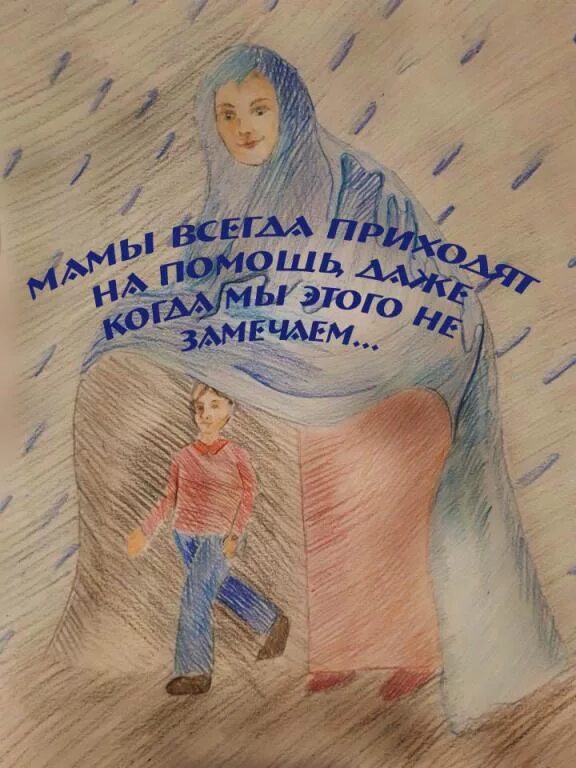 МАМЫ ВСЕГДА ПРИХОДЯТ
НА ПОМОЩЬ, ДАЖЕ
КОГДА МЫ ЭТОГО НЕ
ЗАМЕЧАЕМ...